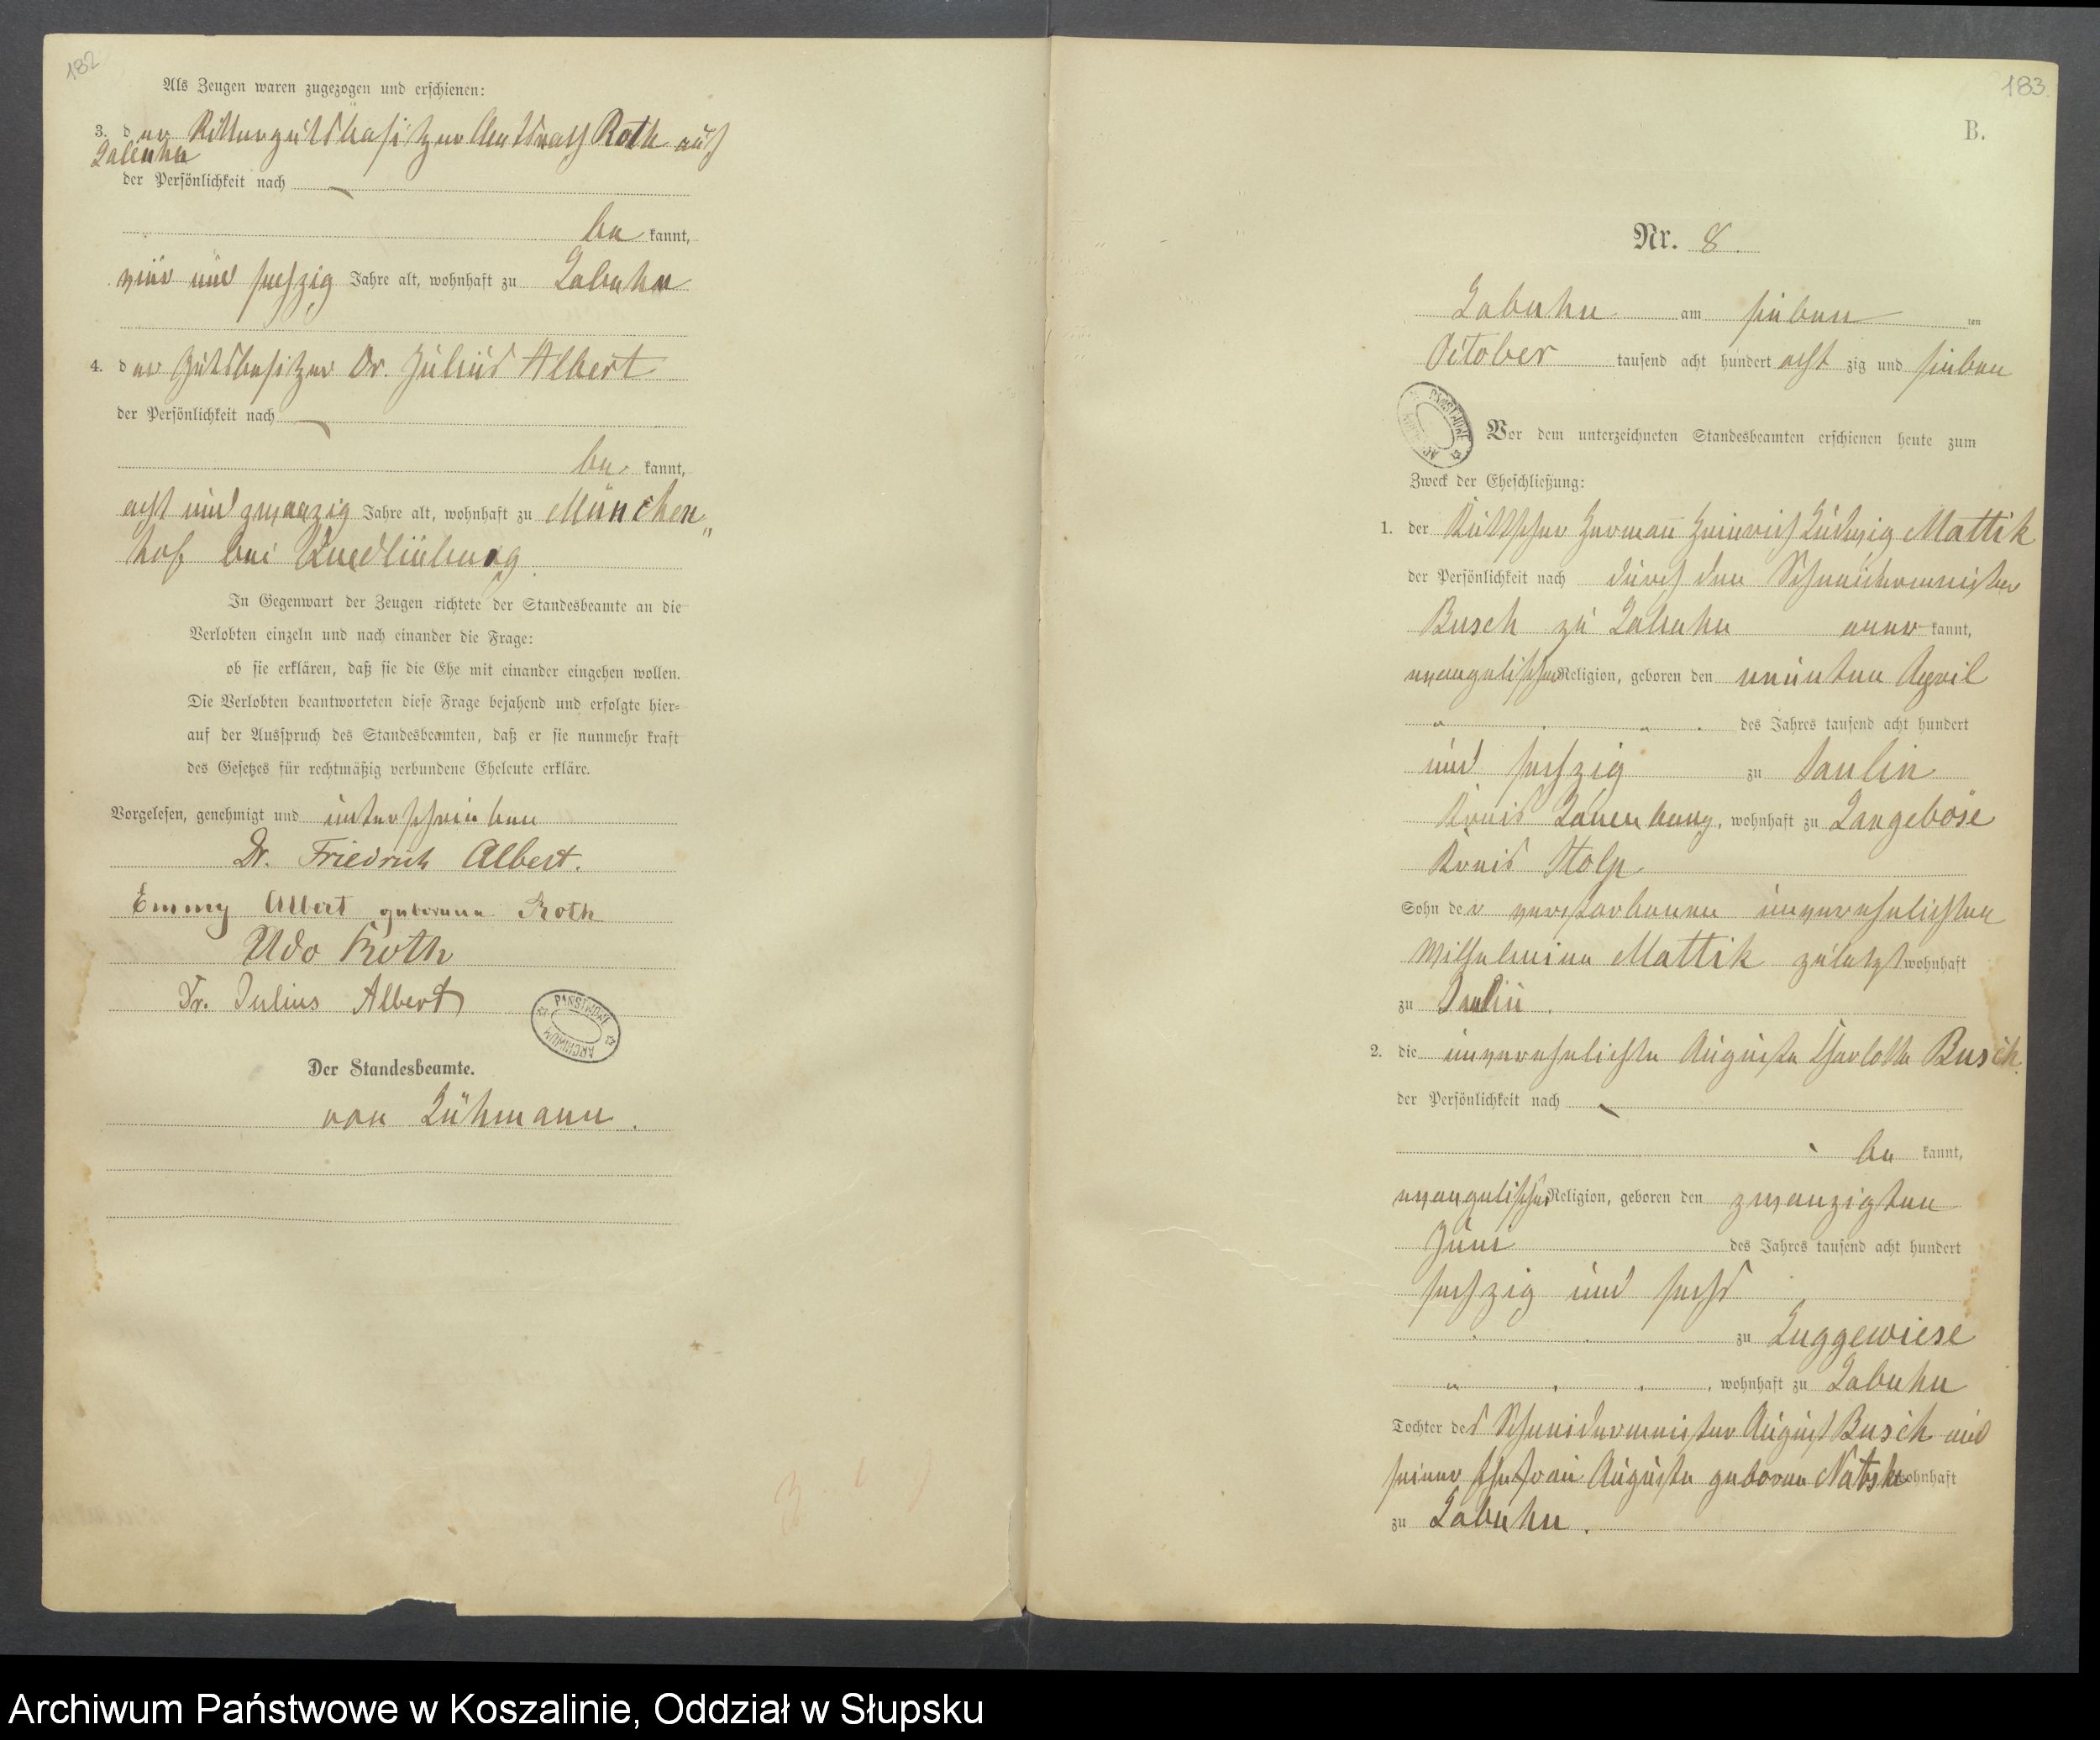 182
Als Zeugen waren zugezogen und erschienen:
3. der Rittergutsbesitzer Amtsrath Roth aus
Labuhn
der Persönlichkeit nach
be kannt,
und sechzig Jahre alt, wohnhaft zu Labuhn
4. der Gutsbesitzer Dr. Julius Albert
der Persönlichkeit nach
be kannt,
acht und zwanzig Jahre alt, wohnhaft zu München„
hof bei Quedlinburg
In Gegenwart der Zeugen richtete der Standesbeamte an die
Verlobten einzeln und nach einander die Frage:
ob sie erklären, daß sie die Ehe mit einander eingehen wollen.
Die Verlobten beantworteten diese Frage bejahend und erfolgte hier-
auf der Ausspruch des Standesbeamten, daß er sie nunmehr kraft
des Gesetzes für rechtmäßig verbundene Eheleute erkläre.
Vorgelesen, genehmigt und unterschrieben
Dr. Friedrich Albert.
Emmy Albert geborene Roth
Udo Roth
Dr. Julius Albert
ARCHIWUM PAŃSTWOWE
Der Standesbeamte.
von Lühmann.
183.
B.
Nr. 8.
Labuhn am sieben ten
October tausend acht hundert acht zig und sieben
PAŃSTWOWE
Vor dem unterzeichneten Standesbeamten erschienen heute zum
Zweck der Eheschließung:
1. der Kutscher Hermann Heinrich Ludwig Mattik
der Persönlichkeit nach durch den Schneidermeister
Busch zu Labuhn aner kannt,
evangelischer Religion, geboren den neunten April
des Jahres tausend acht hundert
und sechzig zu Saulin
Kreis Lauenburg, wohnhaft zu Langeböse
Kreis Stolp
Sohn der verstorbenen unverehelichten
Wilhelmine Mattik zuletzt wohnhaft
zu Saulin.
2. die unverehelichte Auguste Charlotte Busch
der Persönlichkeit nach
be kannt,
evangelischer Religion, geboren den zwanzigten
Juni des Jahres tausend acht hundert
sechzig und sechs
zu Luggewiese
, wohnhaft zu Labuhn
Tochter des Schneidermeister August Busch und
seiner Ehefrau Auguste geborene wohnhaft
zu Labuhn.
Archiwum Państwowe w Koszalinie, Oddział w Słupsku